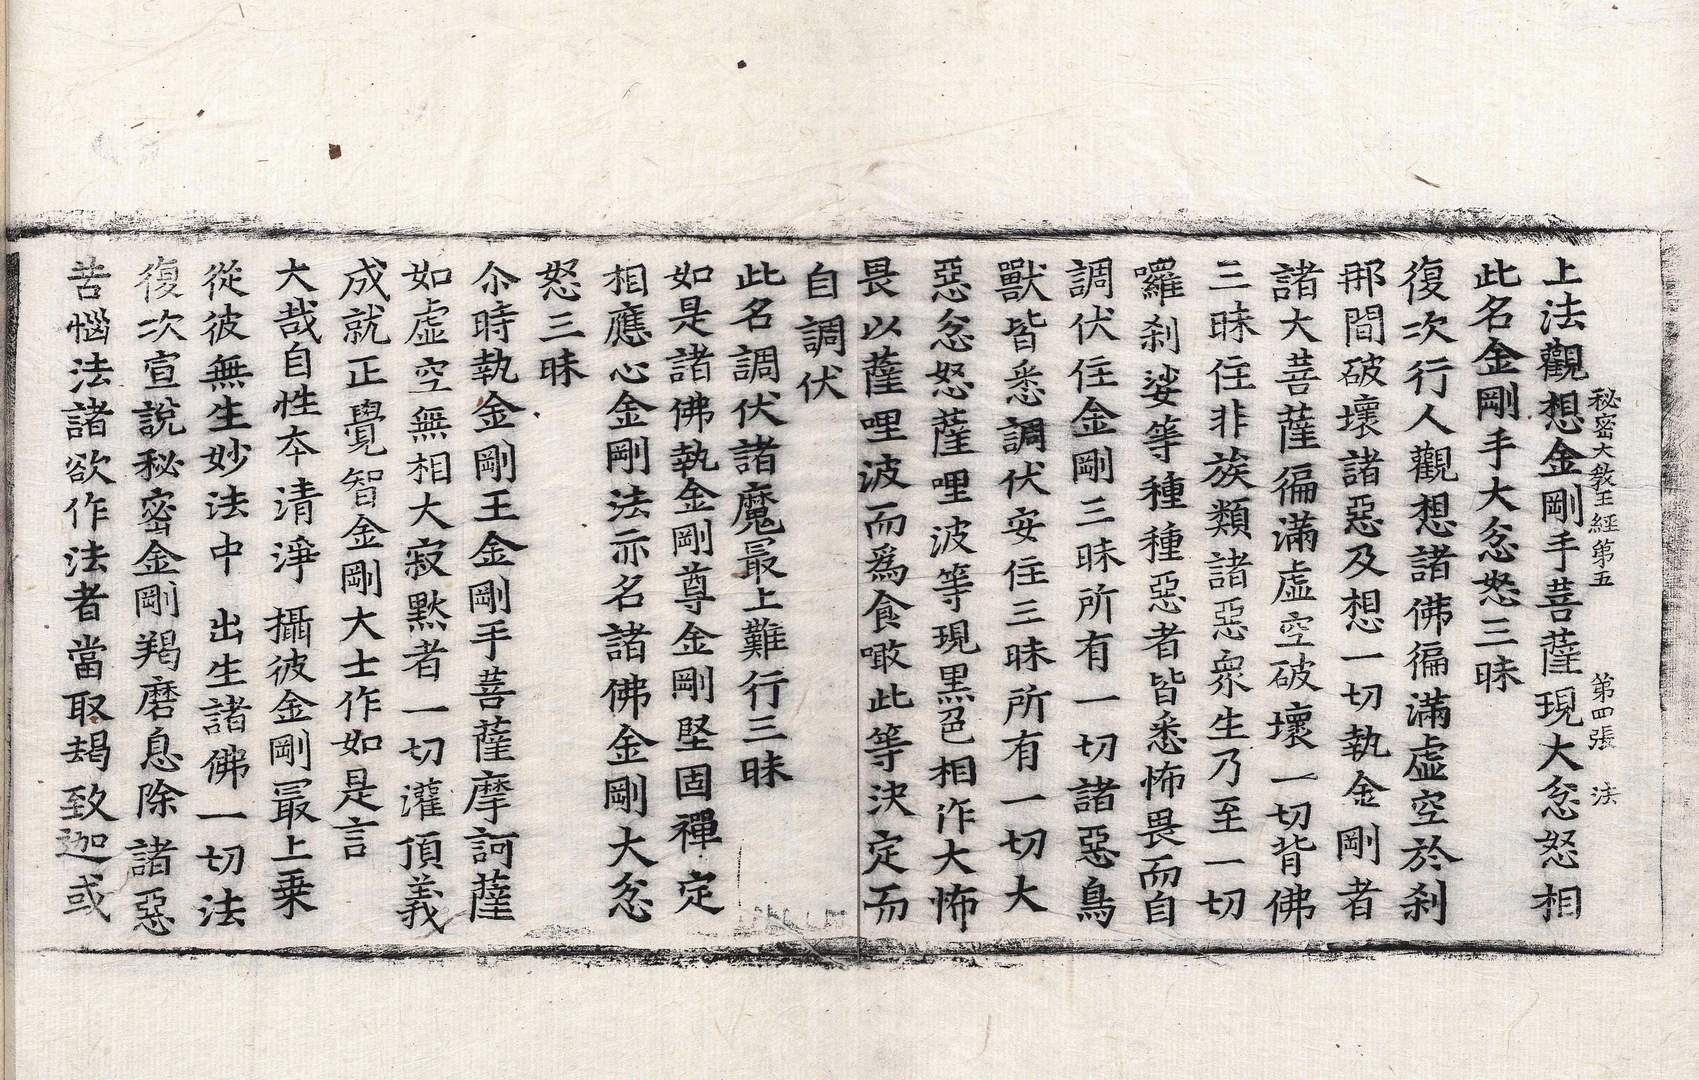 秘密大教王經第五　第四張　法
上法觀想金剛手菩薩現大忿怒相
此名金剛手大忿怒三昧
復次行人觀想諸佛徧滿虛空於剎
那間破壞諸惡及想一切執金剛者
諸大菩薩徧滿虛空破壞一切背佛
三昧住非族類諸惡衆生乃至一切
囉剎娑等種種惡者皆悉怖畏而自
調伏住金剛三昧所有一切諸惡鳥
獸皆悉調伏安住三昧所有一切大
惡忿怒薩哩波等現黑色相作大怖
畏以薩哩波而爲食噉此等決定而
自調伏
此名調伏諸魔最上難行三昧
如是諸佛執金剛尊金剛堅固禪定
相應心金剛法亦名諸佛金剛大忿
怒三昧
尒時執金剛王金剛手菩薩摩訶薩
如虛空無相大寂默者一切灌頂義
成就正覺智金剛大士作如是言
大哉自性本清淨　攝彼金剛最上乗
從彼無生妙法中　出生諸佛一切法
復次宣說秘密金剛羯磨息除諸惡
苦惱法諸欲作法者當取朅致迦或